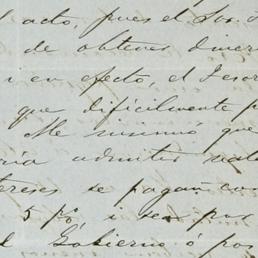 l acto, pues el Sor.
de obtener diner
i en efecto, el Teso
que dificilmente p
Me insinuó que
ría admitir
tereses se pagan con
5 p%, i sea por
el Gobierno ó por